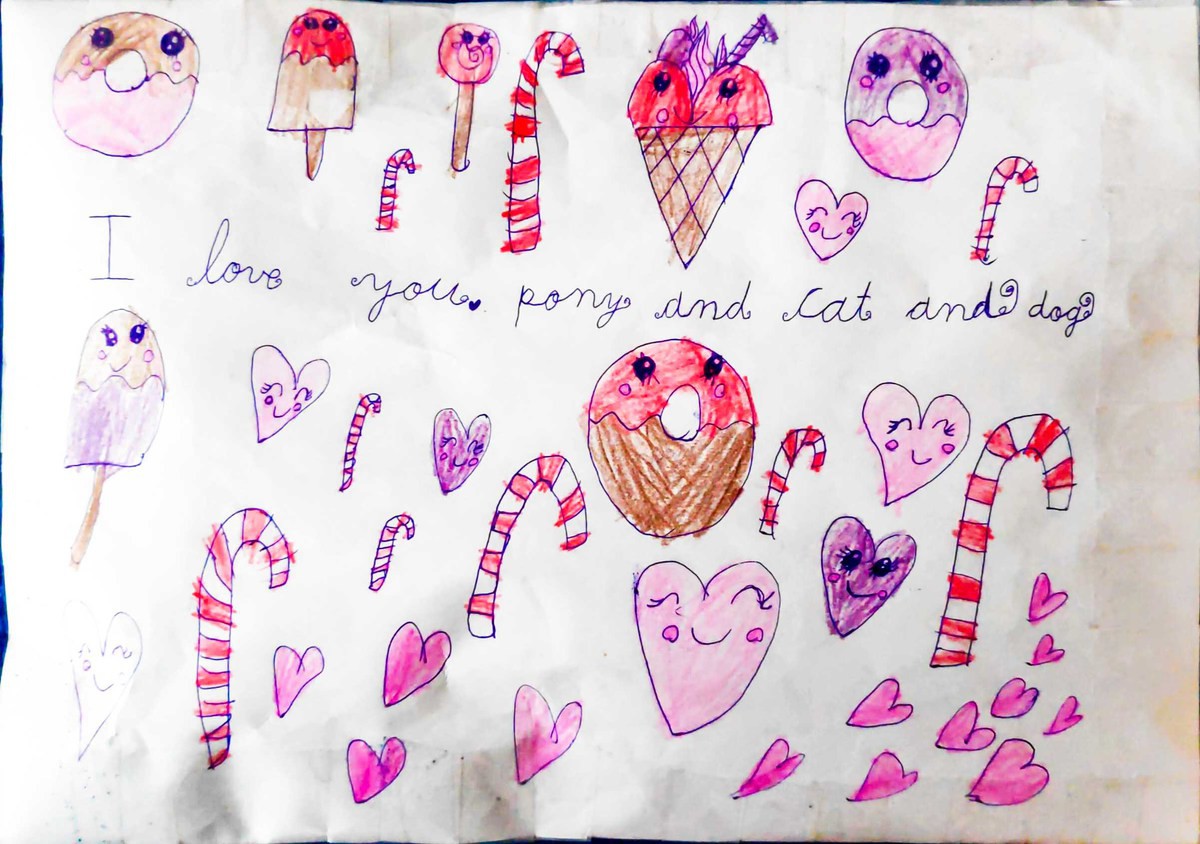 I love you. pony and cat and dog